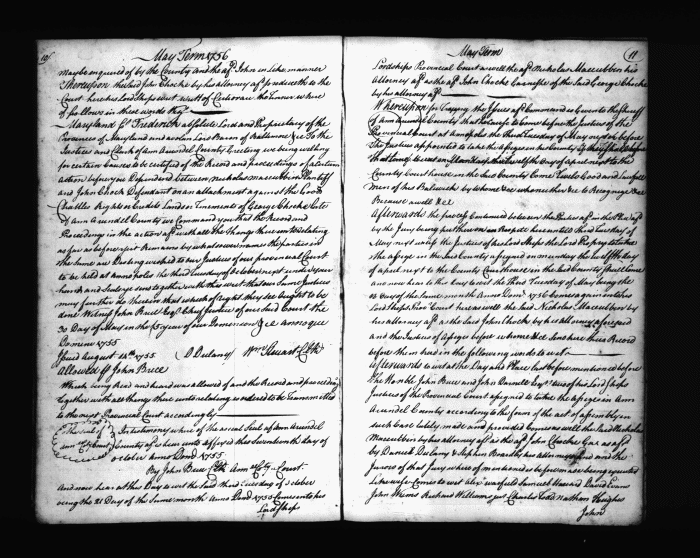 10
May Term 1756
may be enquired of by the County and the afd. John in Like manner
Thereupon the said John Chocke by his attorney afd. produceth to the
Court here his Lordships writ of Certiorari the Tenor where
of follows in these words to wit
Maryland Ss. Frederick absolute Lord and Proprietary of the
Provinces of Maryland and Avalon Lord Baron of Baltimore &c To the
Justices and Clerk of Ann Arundel County Greeting we being willing
for certain Causes to be certified of the Record and Proceedings of a certain
Action before you Depending between Nicholas Maccubbin Plaintiff
and John Chock Defendant on an attachment against the Goods
Chattles Rights Credits Lands or Tenements of George Chocke Late
of Ann Arundel County we Command you that the Record and
Proceeding in the action afd. with all the Things thereunto relating
as far as before you it Remains by whatsoever name the parties in
the Same are Dealing
to be held at Annapolis the third Tuesday of October next under your
hand and Seal you send together with this writ that our Same Justices
may further do therein that which of right they see ought to be
done Witness John Esqr. Chief Justice of our said Court the
30 Day of May in the 5 year of our Dominion &c annoque
Domini 1755
Issued August 14th 1755 D Dulany Wm. Steuart Clk
Allowed John Brice
Which being Read and heard was allowed of and the Record and proceeding
Together with all things thereunto relating ordered to be Transmitted
to the next Provincial Court according by
The seal of In testimony where of the Seal of Ann Arundel
Ann County Court County is here unto affixed this Seventeenth day of
October Anno Domi 1755
By John Brice Clk. Ann County Court
And now here at this Day to wit the said third Tuesday of October
being the 21 Day of the Same month Anno Domi 1755 Comes into his
Lordships
May Term
11
Lordships Provincial Court as well the afd. Nicholas Maccubbin his
Attorney afd. as the afd. John Chocke of the said George Chocke
by his attorney afd.
Whereupon for Trying the Issue afd. Command is Given to the Sheriff
of Ann Arundel County that he Cause to Come before the Justices of the
Provincial Court at Annapolis the third Tuesday of May or before
the Justices appointed to take the Assizes in his County if they shall before
that time to wit on the day of April next to the
County Court house in the said County Come Twelve Good and Lawfull
men of his Bailiwick by whom &c who neither &c to Recognize &c
Because as well &c
Afterwards the process Continued between the Parties afd. in the Plea afd.
by the Jury being put there on Respite here untill the third Tuesday of
May next unless the Justices of his Lordships the Lord Proprietary to take
the assize in the said County assigned on monday the twelfth day
of April next to the County Court house in the said County shall come
and now here to this Day to wit the Third Tuesday of May being the
18 Day of the Same month Anno Domi 1756 Comes again into his
Lordships Provl. Court here as well the said Nicholas Maccubbin by
his attorney afd. as the said John Chock by his Attorney aforesaid
and the Justices of Assize before whom &c Send here their Record
before them had in the following words to wit
Afterwards to wit at the Day and Place last before mentioned before
The Honble John Brice and John Darnell Esqrs. two of his Lordships
Justices of the Provincial Court assigned to take the assize in Ann
Arundel County according to the form of the act of assembly in
such Case lately made and provided Comes as well the said Nicholas
Maccubbin by his attorney afd. as the afd. John Chocke Gar. as afd.
by Daniel Dulany & Stephen Bordley his attorneys and the
Jurors of that Jury where of mention is before made being required
Likewise Comes to wit Alexr. Warfield Samuel Howard David Evans
John Weems Richard Williams Charles Todd Nathan Hughes
John